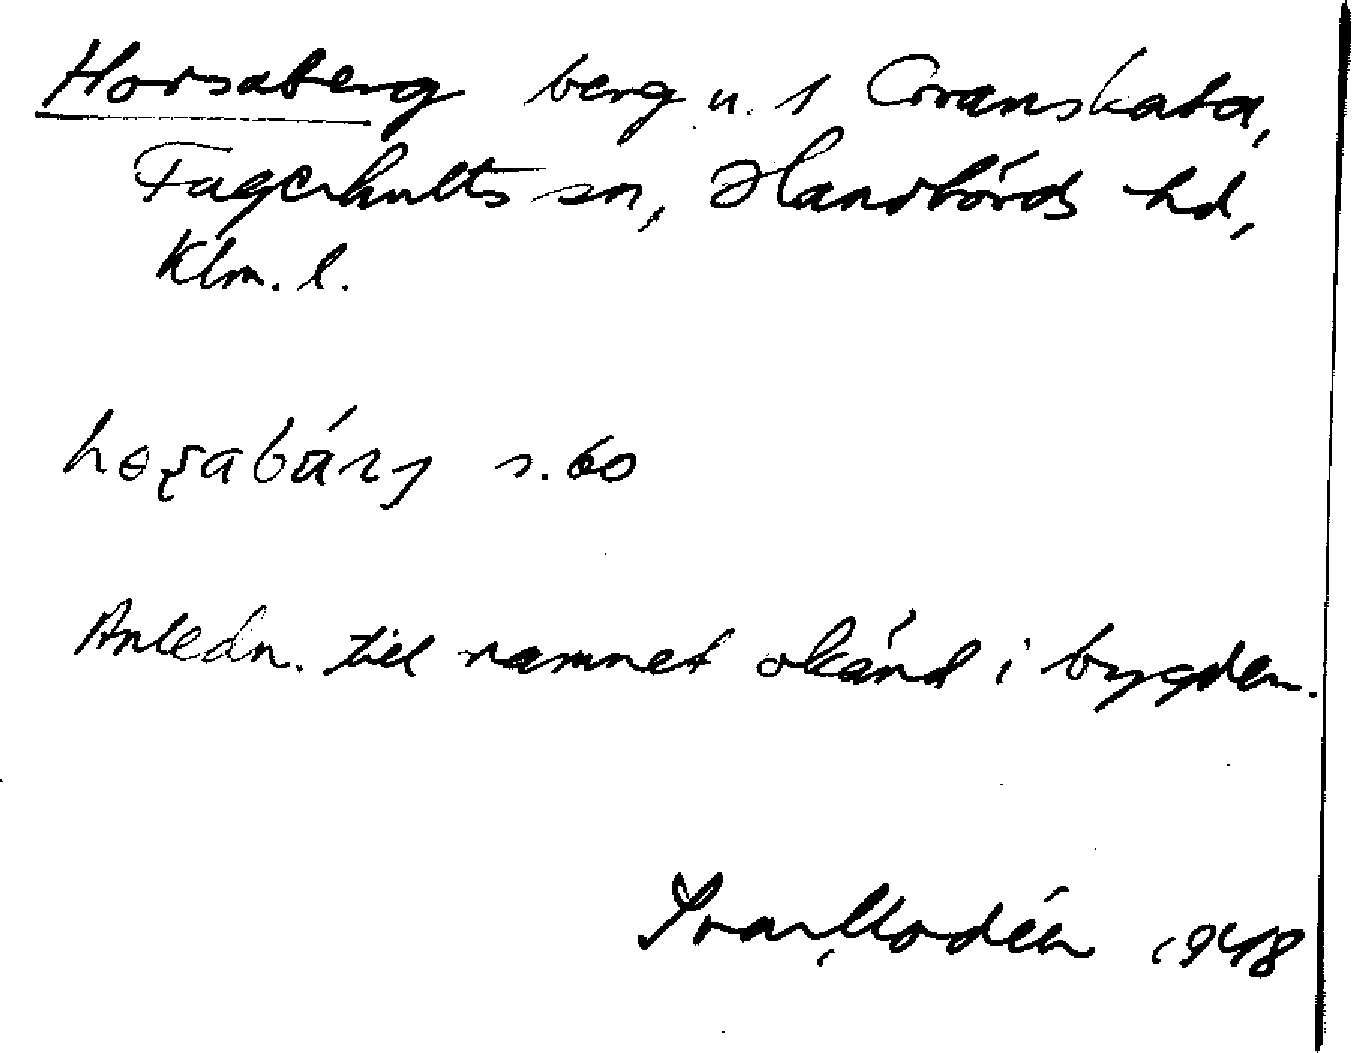 Horsaberg berg u. 1 Granskata,
Fagerhults sn, Handbörds hd,
Klm. l.
s. 60
Anledn. till namnet okänd i bygden.
Ivar Modéer 1948